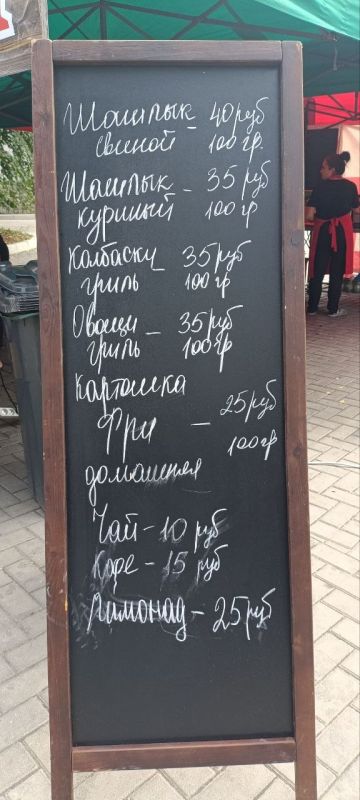 Шашлык - 40 руб
свиной 100 гр.
Шашлык - 35 руб
куриный 100 гр
Колбаски - 35 руб
гриль 100 гр
Овощи - 35 руб
гриль 100 гр
Картошка
Фри - 25 руб
домашняя 100 гр
Чай - 10 руб
Кофе - 15 руб
Лимонад - 25 руб